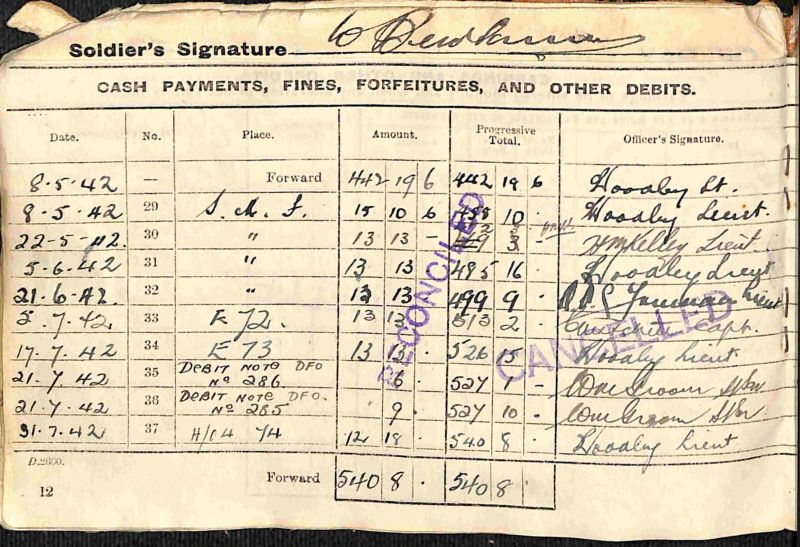 Soldier's Signature
CASH PAYMENTS, FINES, FORFEITURES, AND OTHER DEBITS.
Date. No. Place. Amount. Progressive Total. Officer's Signature.
8.5.42 — Forward 442 19 6 442 19 6 Hoodby Lt.
8.5.42 29 S.M.F. 15 10 6 10 Hoodby Lieut.
22-5-42. 30 " 13 13 - 3 - HmKelley Lieut.
5.6.42 31 " 13 13 485 16 . Hoodby Lieut
21.6.42. 32 " 13 13 499 9 . Lieut
2.7.42. 33 E 72. 13 13 513 2 . Capt.
17.7.42 34 E 73 13 13 . 526 15 Hoodby Lieut
21.7.42 35 DEBIT NOTE DFO Nº 286. 6 . 527 1 - Wm Groom
21.7.42 36 DEBIT NOTE DFO. Nº 285 9 . 527 10 . Wm Groom
31.7.42 37 H/04 74 12 18 . 540 8 . Hoodby Lieut
RECONCILED
CANCELLED
D.2600.
Forward 540 8 . 540 8 .
12